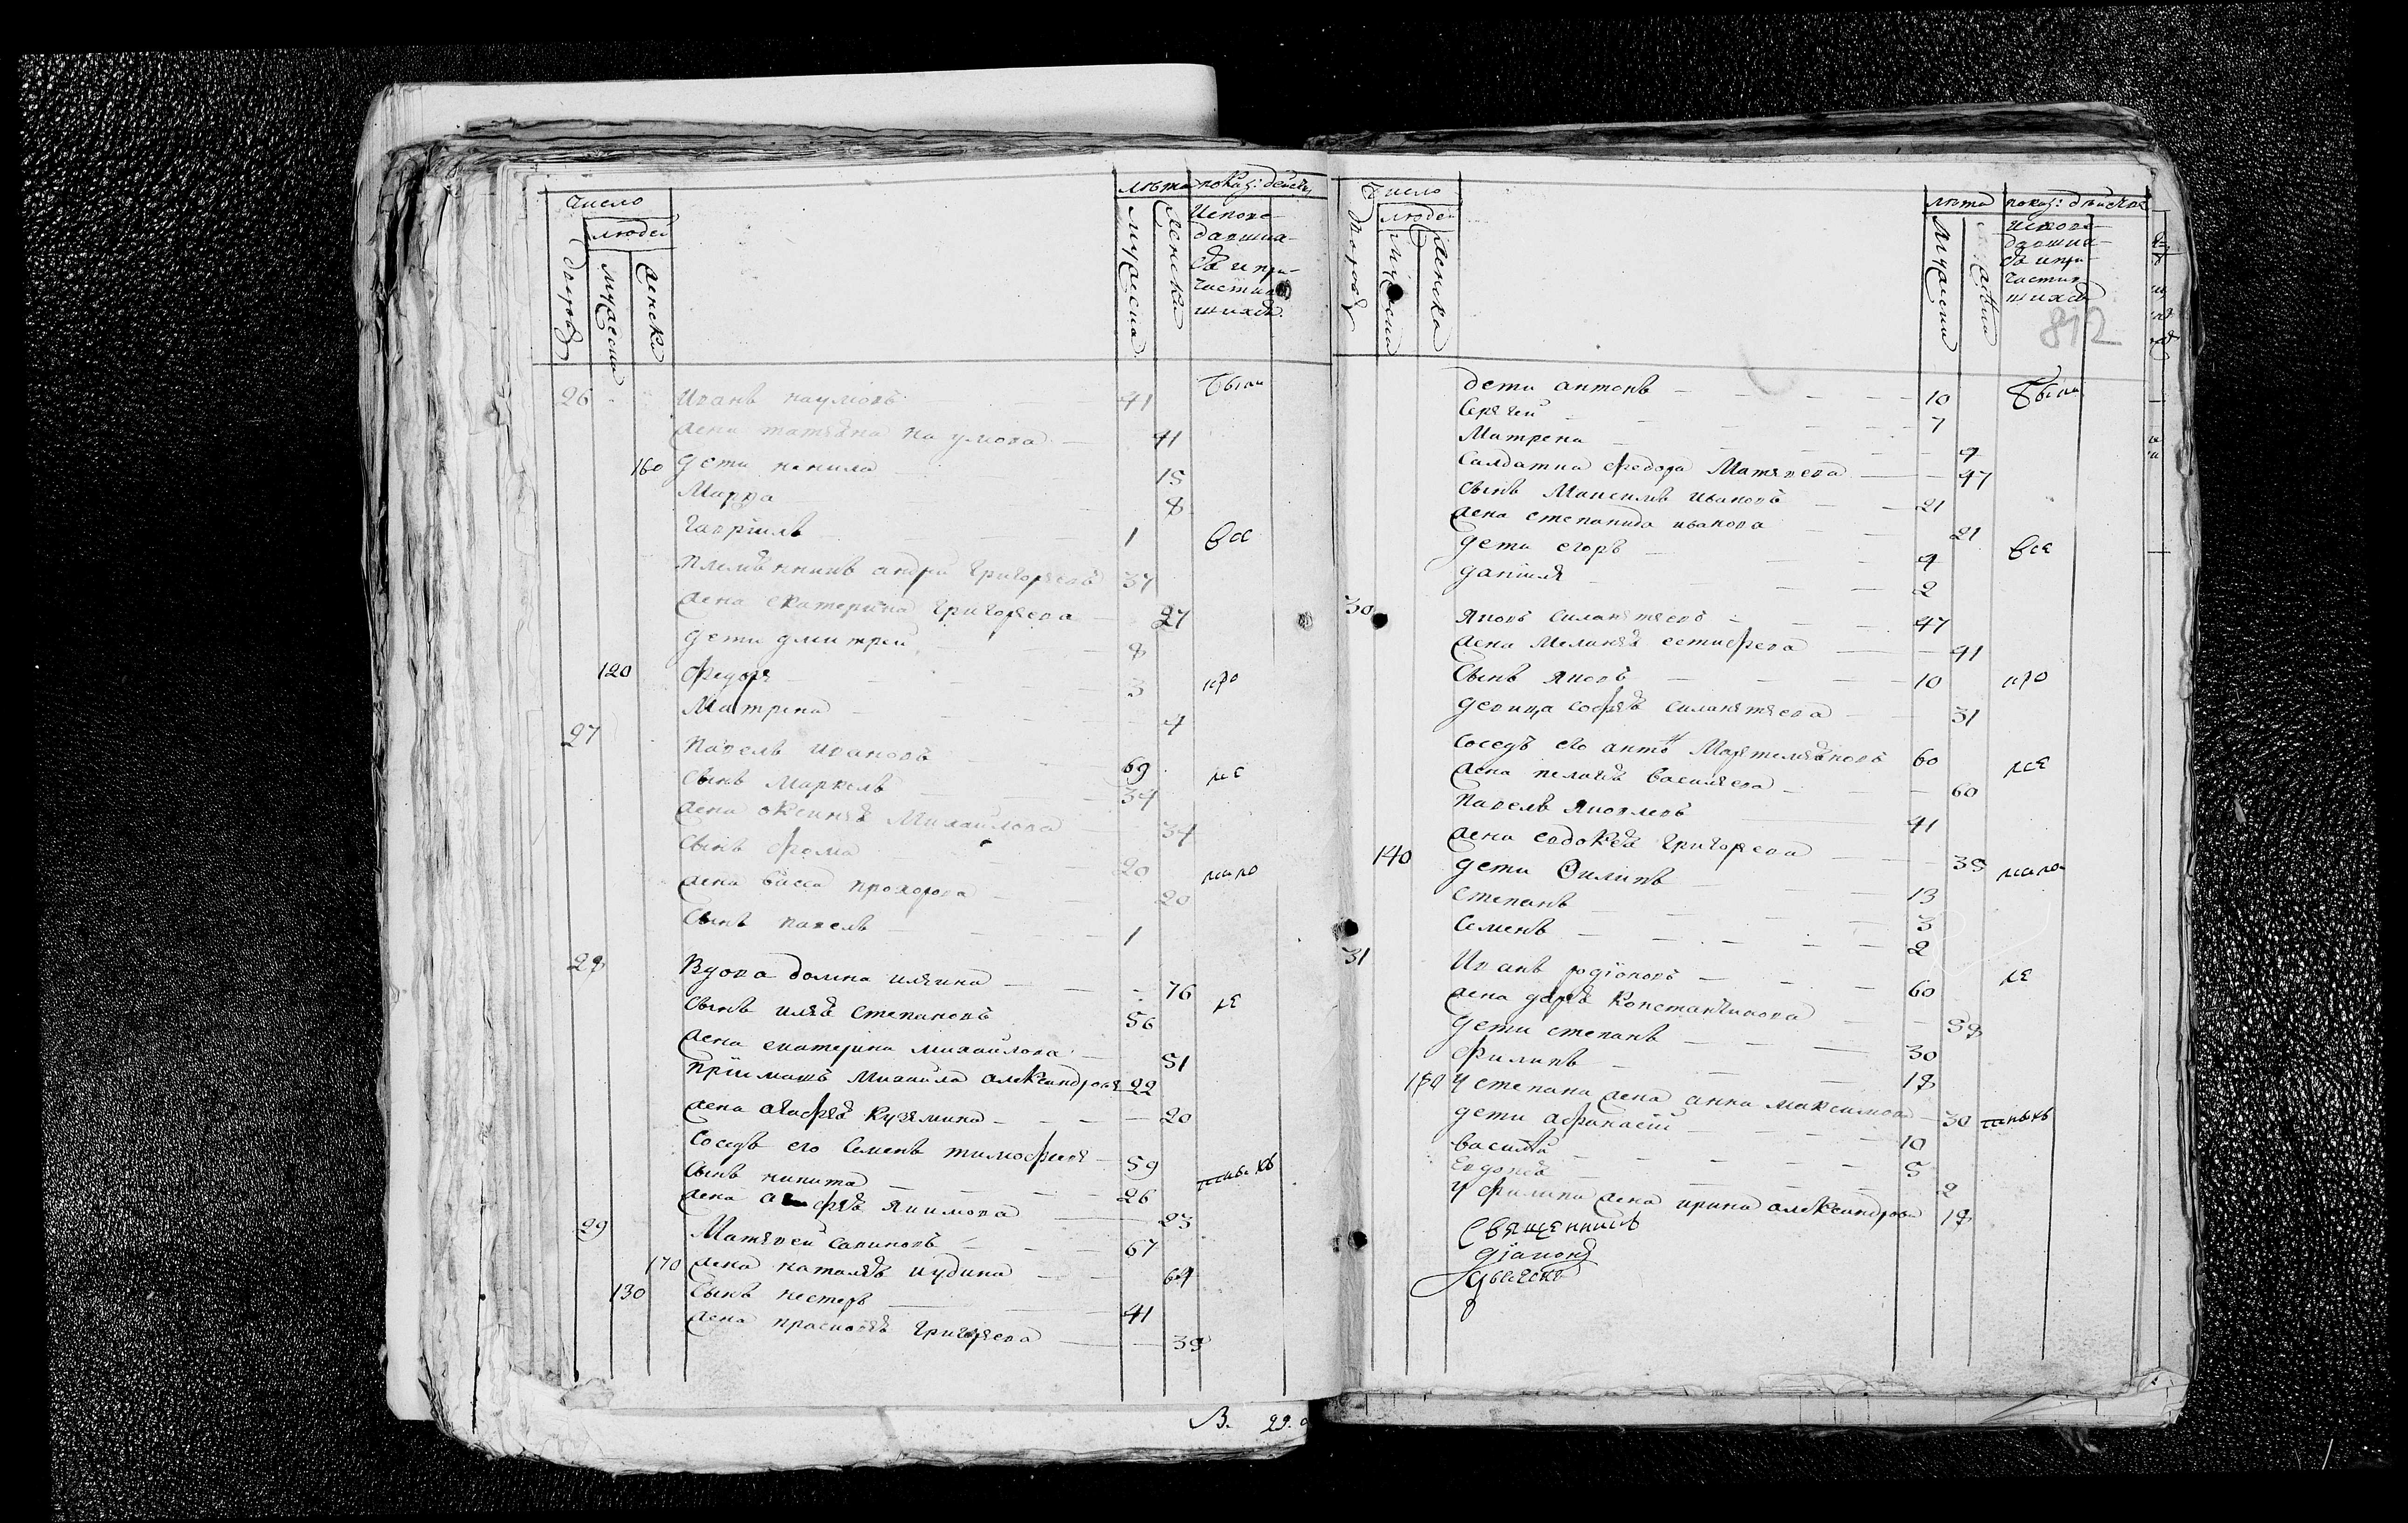 число
людей
дворовъ
мужеска
женска
лѣта
показ: дѣйств
мужеска
женска
Испове-
давша-
ся и при-
частив
шихся
26 Иванъ наумовъ 41 были
жена татьяна наумова 41
160 дети ненила 15
Марѳа 8
гавріилъ 1 все
племѣнникъ андрей григорьевъ 37
жена екатерина григорьева 27
дети дмитрей 8
120 федоръ 3 испо
Матрена 4
27 Павелъ ивановъ 69
сынъ Маркелъ 34
жена оксинья Михайлова 34
сынъ фома 20
жена васса прохорова 20
сынъ павелъ 1
28 Вдова домна ильина 76
сынъ илья степановъ 56
жена екатерина михайлова 51
пріимышъ Михайла александровъ 22
жена агафья кузьмина 20
соседъ его Семенъ тимофеевъ 59
сынъ никита 26
жена якимова 23
29 Матвей савиновъ 67
170 жена наталья иудина 64
130 сынъ нестеръ 41
жена прасковья григорьева 39
В. 29.
число
людей
дворовъ
мужеска
женска
лѣта
показ: дѣйств
мужеска
Испове-
давша-
ся и при-
частив
шихся
812
дети антонъ 10 были
Сергей 7
Матрена 4
Салдатка федора Матвеева 47
сынъ Максимъ ивановъ 21
жена степанида иванова 21
дети егоръ 4 все
данила 2
30 Яковъ силантьевъ 47
жена Меланья естифеева 41
сынъ яковъ 10
девица софья силантьева 31
соседъ его антонъ Мартемьяновъ 60
жена пелагея васильева 60
Павелъ яковлевъ 41
жена евдокея григорьева 39
140 дети Филипъ 13
степанъ 3
семенъ 2
31 Иванъ родіоновъ 60
жена дарья константинова 58
дети степанъ 30
филипъ 18
180 у степана жена анна максимова 30
дети афанасей 10
василей 5
Евдокея 2
у филипа жена ирина александрова 18
Священникъ
діаконъ